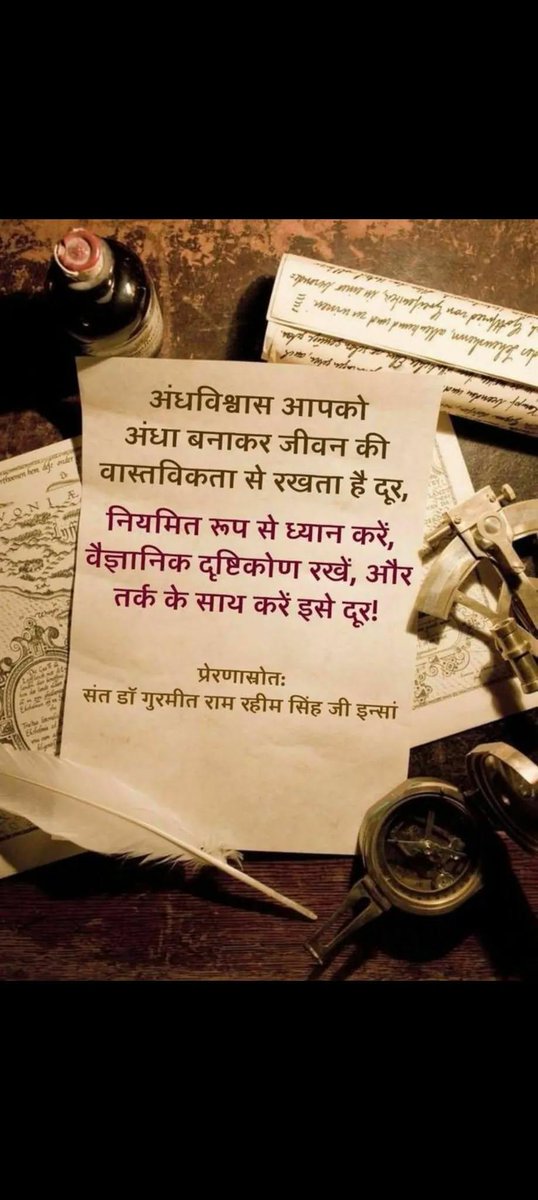 अंधविश्वास आपको
अंधा बनाकर जीवन की
वास्तविकता से रखता है दूर,
नियमित रूप से ध्यान करें,
वैज्ञानिक दृष्टिकोण रखें, और
तर्क के साथ करें इसे दूर!
प्रेरणास्रोतः
संत डॉ गुरमीत राम रहीम सिंह जी इन्सां